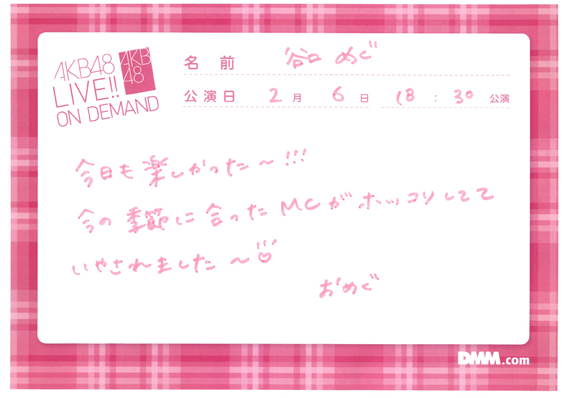 AKB48
LIVE!!
ON DEMAND
AKB
48
名前 谷口 めぐ
公演日 2月 6日 18:30公演
今日も楽しかった〜!!!
今の季節に合ったMCがホッコリしてて
いやされました〜
おめぐ
DMM.com